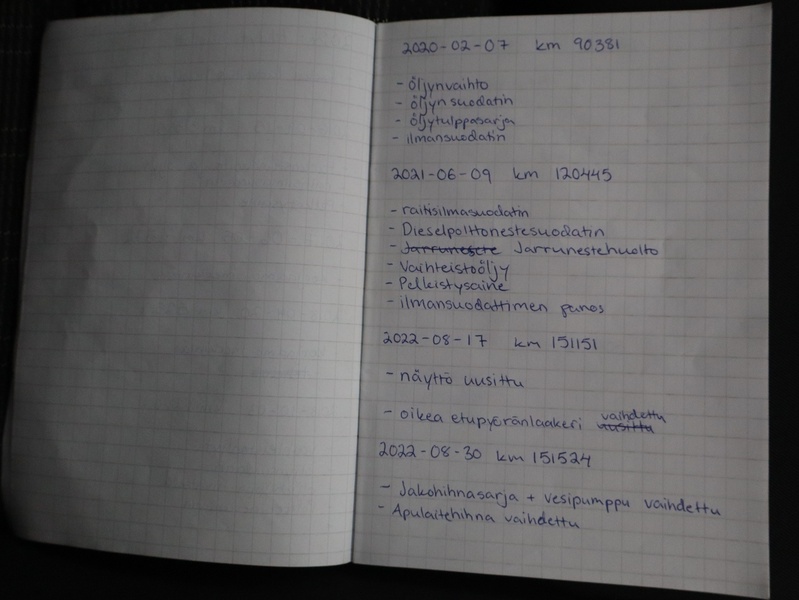 2020-02-07 km 90381
- öljynvaihto
- öljyn suodatin
- öljytulppasarja
- ilmansuodatin
2021-06-09 km 120445
- raitisilmasuodatin
- Dieselpolttonestesuodatin
- Jarruneste Jarrunestehuolto
- Vaihteistoöljy
- Pelkistysaine
- ilmansuodattimen panos
2022-08-17 km 151151
- näyttö uusittu
- oikea etupyöränlaakeri uusittu vaihdettu
2022-08-30 km 151524
- Jakohihnasarja + vesipumppu vaihdettu
- Apulaitehihna vaihdettu